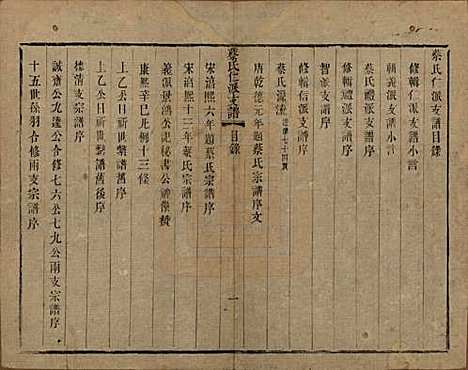 蔡氏仁派支譜目錄
修輯仁派支譜小言
輯義派支譜小言
蔡氏禮派支譜序
修輯禮派支譜序
智派支譜序
修輯信派支譜序
蔡氏源流
唐乾德元年題蔡氏宗譜序文
蔡氏仁派支譜 目錄 一
宋淳熙六年題蔡氏宗譜序
宋淳熙十三年蔡氏宗譜序
義派景鴻公記秘書公譜像贊
康熙辛巳凡例十三條
上乙公日新世譜舊序
上乙公日新世譜舊後序
德清支宗譜序
誠齋公九逵公合修七六公七九公兩支宗譜序
十五世孫羽合修兩支宗譜序